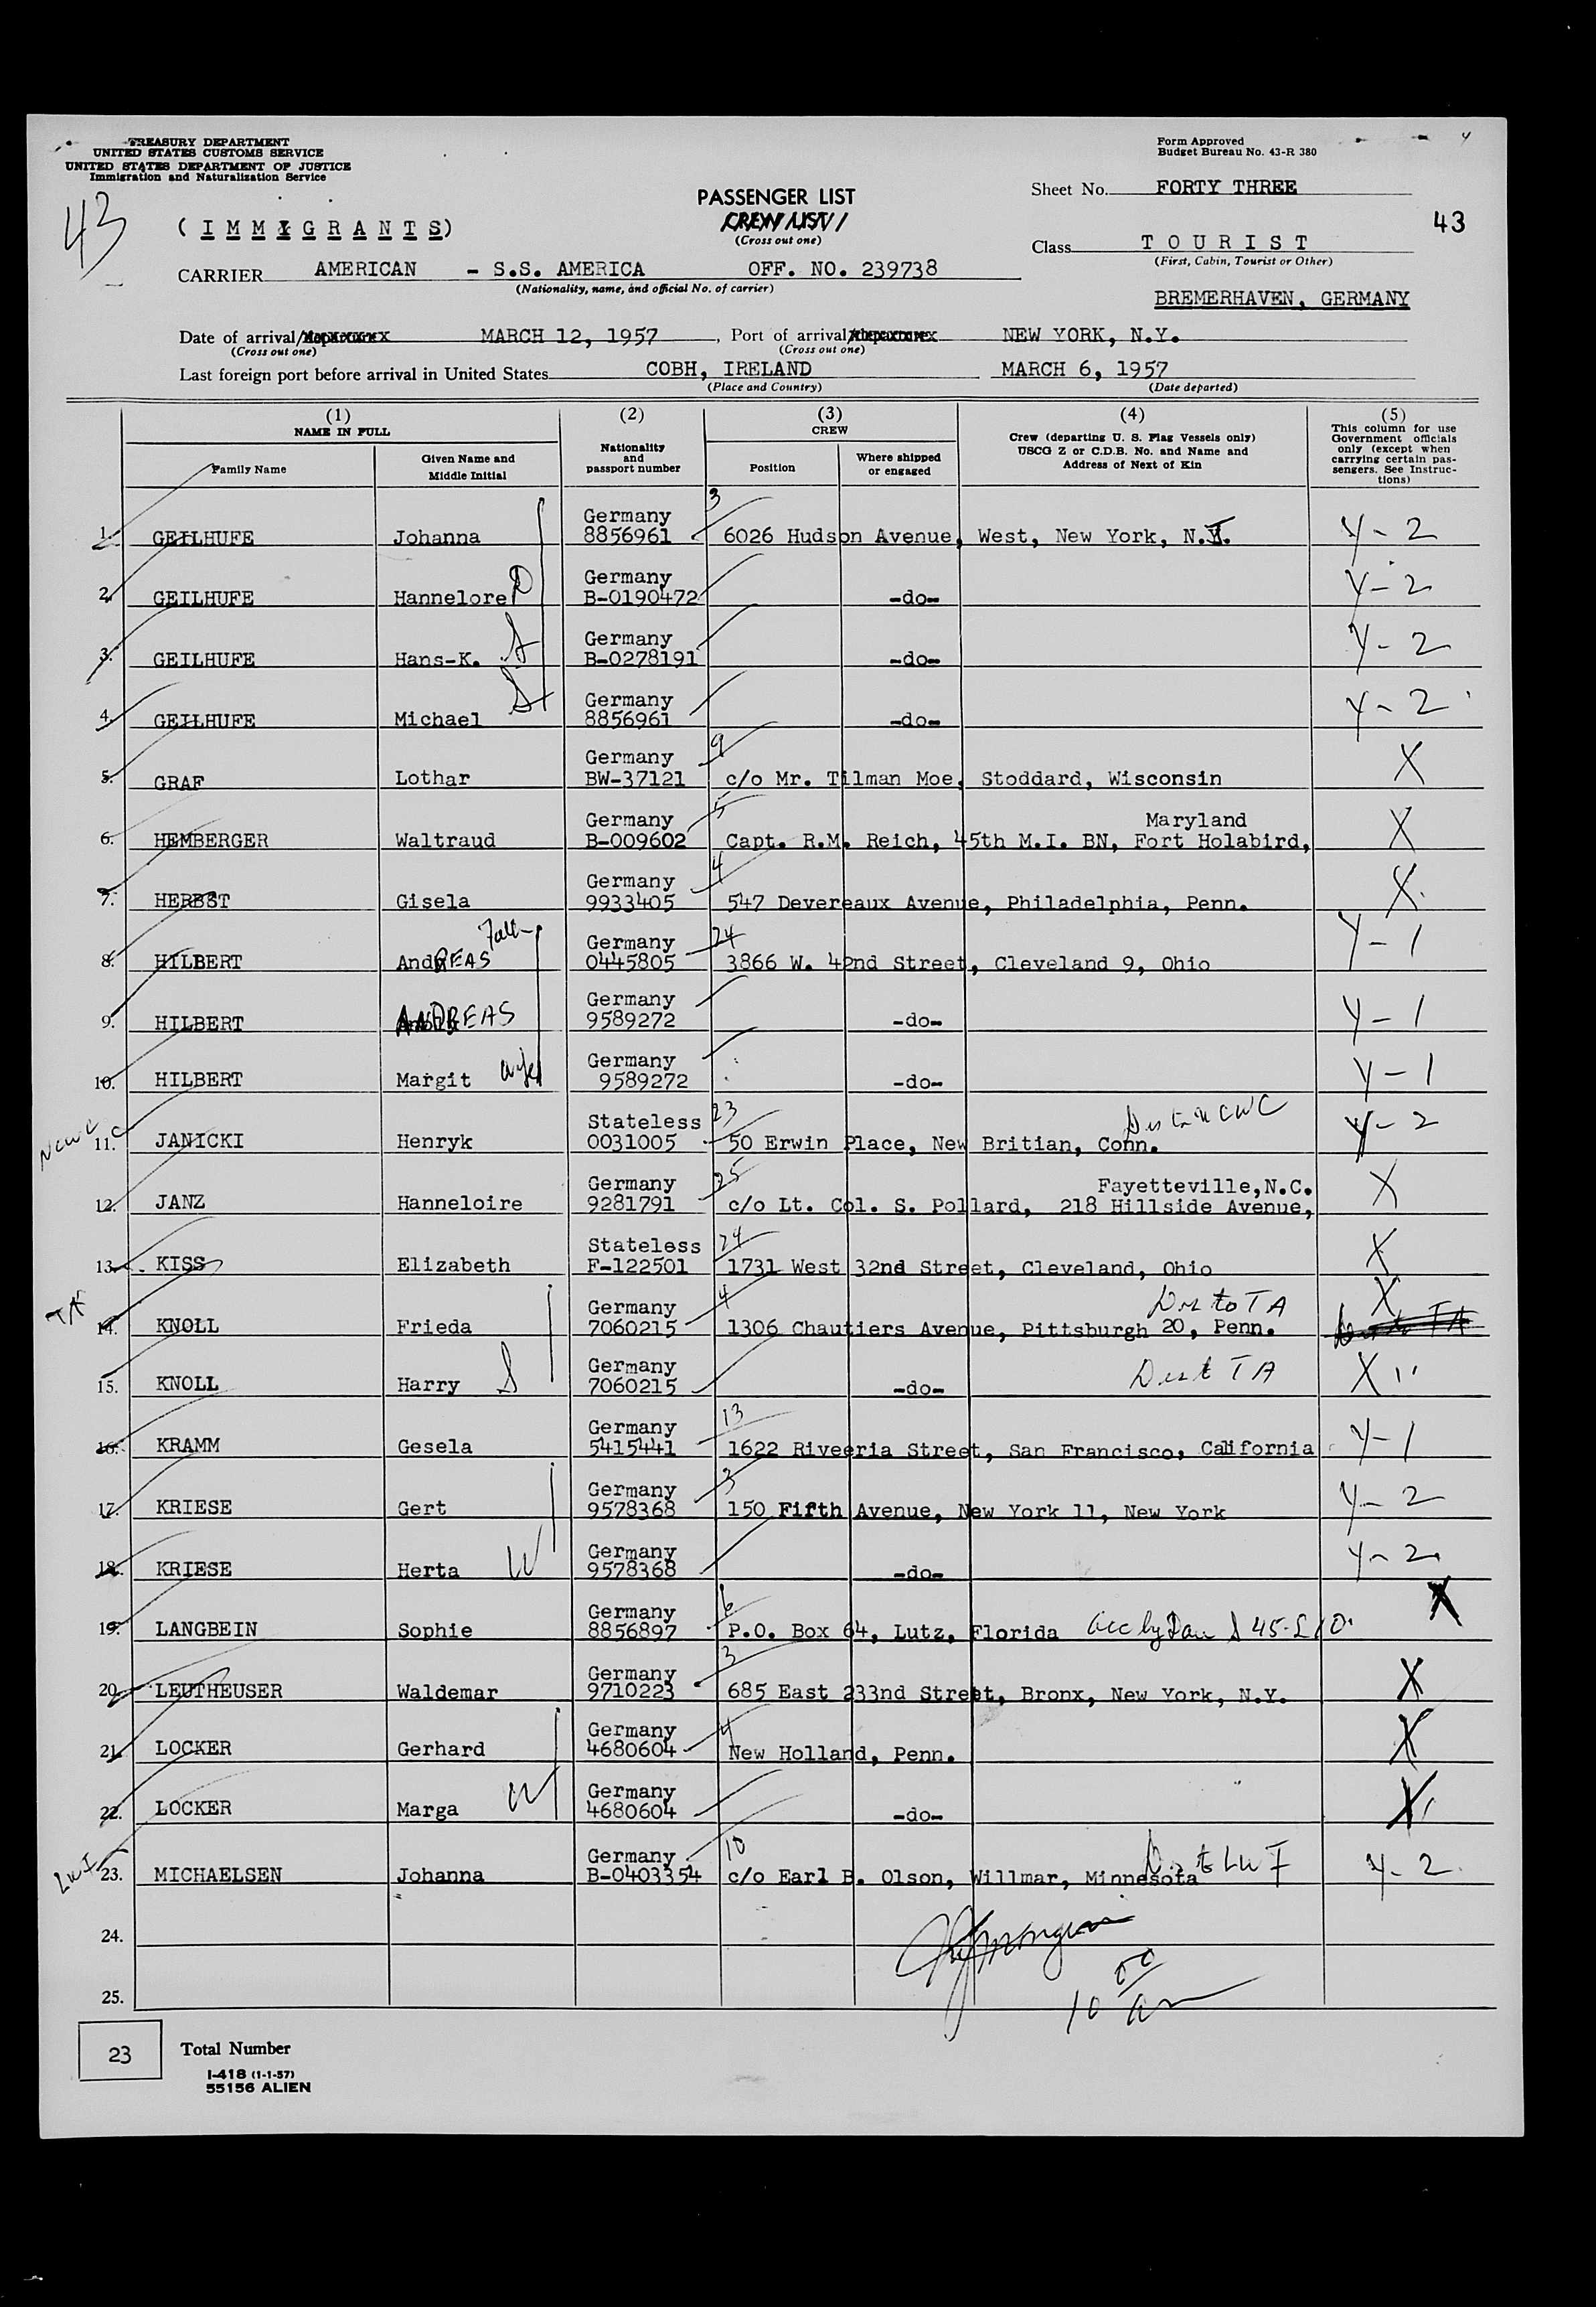 TREASURY DEPARTMENT
UNITED STATES CUSTOMS SERVICE
UNITED STATES DEPARTMENT OF JUSTICE
Immigration and Naturalization Service
Form Approved
Budget Bureau No. 43-R 380
43
(IMMIGRANTS)
PASSENGER LIST
CREW LIST
(Cross out one)
Sheet No. FORTY THREE
43
Class TOURIST
(First, Cabin, Tourist or Other)
CARRIER AMERICAN - S.S. AMERICA OFF. NO. 239738
(Nationality, name, and official No. of carrier)
BREMERHAVEN, GERMANY
Date of arrival/ MARCH 12, 1957, Port of arrival/ NEW YORK, N.Y.
(Cross out one) (Cross out one)
Last foreign port before arrival in United States COBH, IRELAND MARCH 6, 1957
(Place and Country) (Date departed)
(1) NAME IN FULL
Family Name
Given Name and Middle Initial
(2) Nationality and passport number
(3) CREW
Position
Where shipped or engaged
(4) Crew (departing U. S. Flag Vessels only) USCG Z or C.D.B. No. and Name and Address of Next of Kin
(5) This column for use Government officials only (except when carrying certain passengers. See Instructions)
1. GEILHUFE Johanna Germany 8856961 3 6026 Hudson Avenue, West, New York, N.J. Y-2
2. GEILHUFE Hannelore D Germany B-0190472 -do- Y-2
3. GEILHUFE Hans-K. S Germany B-0278191 -do- Y-2
4. GEILHUFE Michael S Germany 8856961 -do- Y-2
5. GRAF Lothar Germany BW-37121 9 c/o Mr. Tilman Moe, Stoddard, Wisconsin X
6. HEMBERGER Waltraud Germany B-009602 5 Capt. R.M. Reich, 45th M.I. BN, Fort Holabird, Maryland X
7. HERBST Gisela Germany 9933405 4 547 Devereaux Avenue, Philadelphia, Penn. X
8. HILBERT AndREAS Germany 0445805 24 3866 W. 42nd Street, Cleveland 9, Ohio Y-1
9. HILBERT ANDREAS Germany 9589272 -do- Y-1
10. HILBERT Margit wife Germany 9589272 -do- Y-1
11. JANICKI Henryk Stateless 0031005 23 50 Erwin Place, New Britian, Conn. Y-2
12. JANZ Hanneloire Germany 9281791 25 c/o Lt. Col. S. Pollard, 218 Hillside Avenue, Fayetteville,N.C. X
13. KISS Elizabeth Stateless F-122501 24 1731 West 32nd Street, Cleveland, Ohio X
TA 14. KNOLL Frieda Germany 7060215 4 1306 Chautiers Avenue, Pittsburgh 20, Penn. Des to TA X
15. KNOLL Harry S Germany 7060215 -do- Des to TA X "
16. KRAMM Gesela Germany 5415441 13 1622 Riveeria Street, San Francisco, California Y-1
17. KRIESE Gert Germany 9578368 3 150 Fifth Avenue, New York 11, New York Y-2
18. KRIESE Herta W Germany 9578368 -do- Y-2
19. LANGBEIN Sophie Germany 8856897 6 P.O. Box 64, Lutz, Florida X
20. LEUTHEUSER Waldemar Germany 9710223 3 685 East 233nd Street, Bronx, New York, N.Y. X
21. LOCKER Gerhard Germany 4680604 4 New Holland, Penn. X
22. LOCKER Marga W Germany 4680604 -do- X
23. MICHAELSEN Johanna Germany B-0403354 10 c/o Earl B. Olson, Willmar, Minnesota Y-2
24.
25.
10 00
23 Total Number
I-418 (1-1-57)
55156 ALIEN